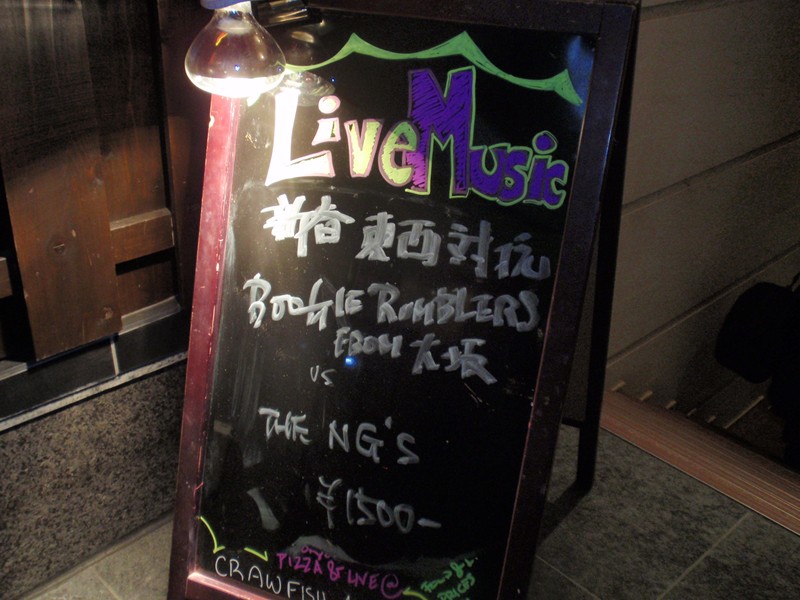 Live Music
新春 東西対抗
BOOGIE RAMBLERS
FROM 大坂
VS
THE NG'S
¥1500-
PIZZA & LIVE @
CRAWFISH